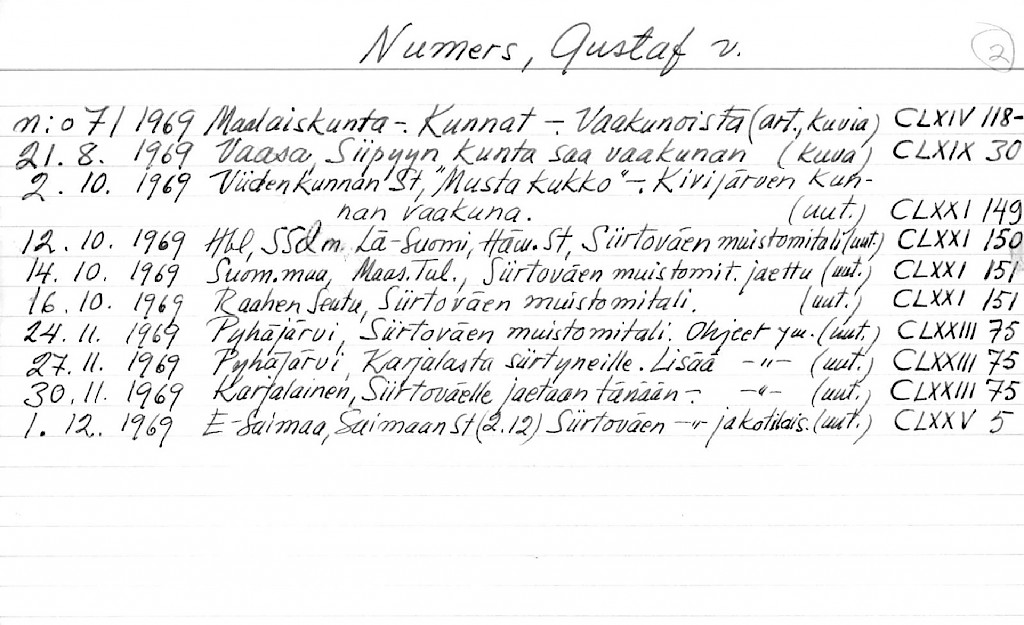 Numers, Gustaf v. 2
n:o 7/ 1969 Maalaiskunta -. Kunnat -. Vaakunoista (art., kuvia) CLXIV 118-
21. 8. 1969 Vaasa, Siipyyn kunta saa vaakunan (kuva) CLXIX 30
2. 10. 1969 Viidenkunnan St, "Musta kukko" -. Kivijärven kun-
nan vaakuna. (uut.) CLXXI 149
12. 10. 1969 Hbl, SSd m. Lä-Suomi, Häm. St, Siirtoväen muistomitali (uut.) CLXXI 150
14. 10. 1969 Suom.maa, Maas.Tul., Siirtoväen muistomit. jaettu (uut.) CLXXI 151
16. 10. 1969 Raahen Seutu, Siirtoväen muistomitali. (uut.) CLXXI 151
24. 11. 1969 Pyhäjärvi, Siirtoväen muistomitali. Ohjeet ym. (uut.) CLXXIII 75
27. 11. 1969 Pyhäjärvi, Karjalasta siirtyneille. Lisää -"- (uut.) CLXXIII 75
30. 11. 1969 Karjalainen, Siirtoväelle jaetaan tänään -. -"- (uut.) CLXXIII 75
1. 12. 1969 E-Saimaa, Saimaan St (2.12) Siirtoväen -"- ja kotilais. (uut.) CLXXV 5